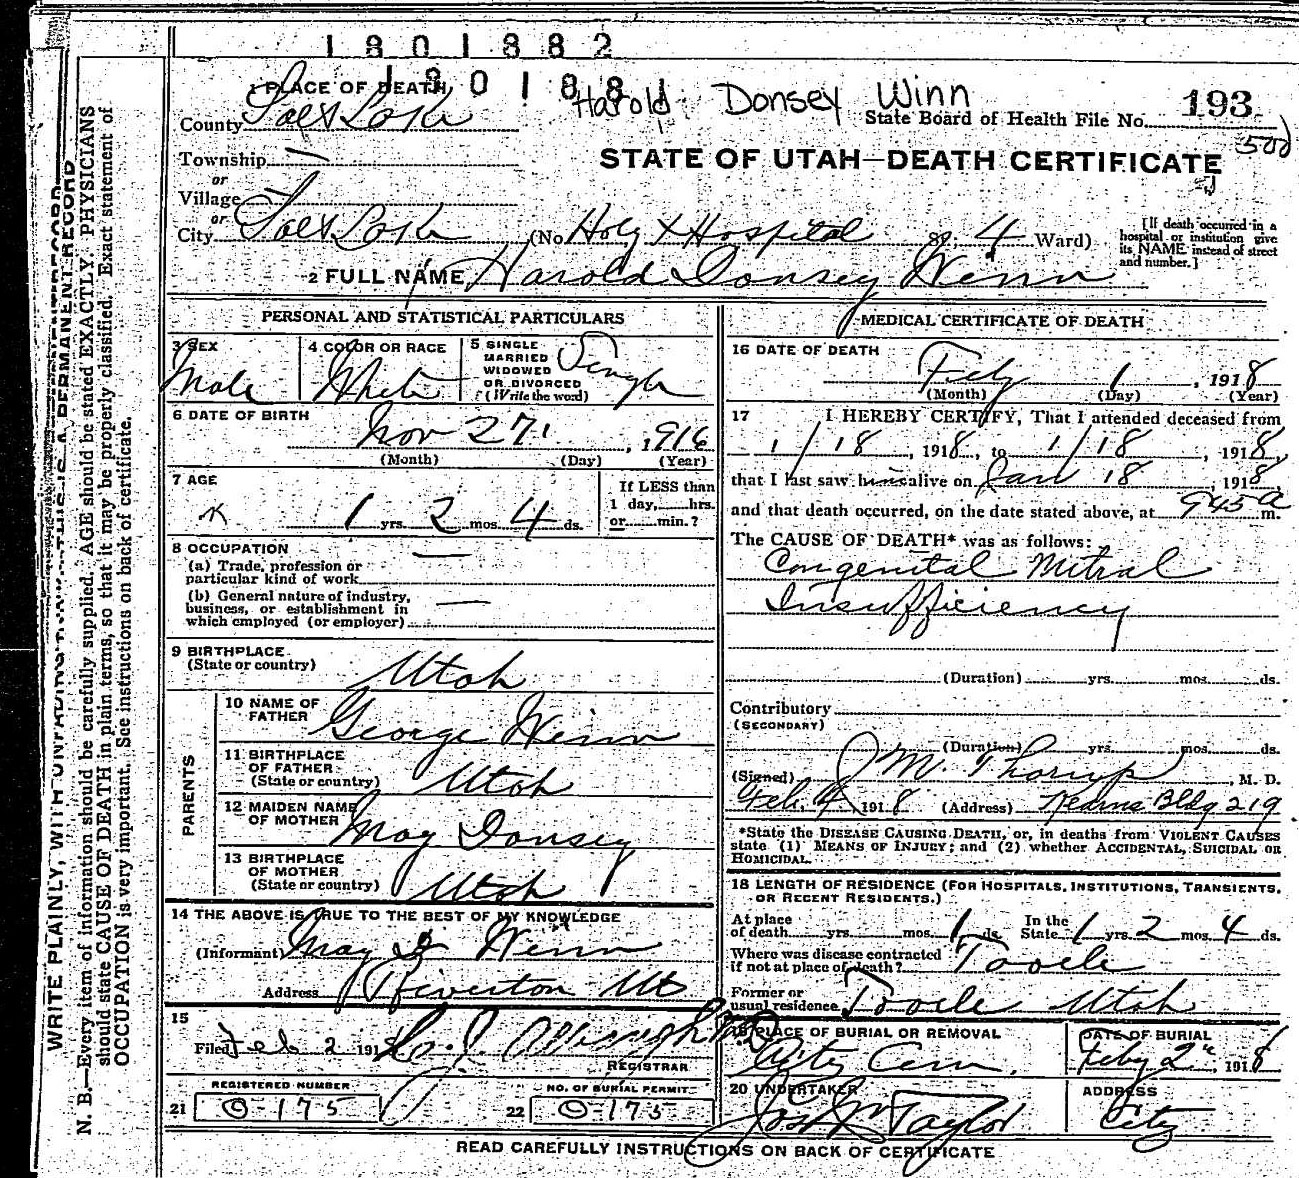 1801882
1801881
Harold Donsey Winn
1 PLACE OF DEATH
County Salt Lake
State Board of Health File No. 193
500
Township —
or
Village
or
City Salt Lake (No. Holy X Hospital St; 4 Ward)
STATE OF UTAH—DEATH CERTIFICATE
[If death occurred in a hospital or institution give its NAME instead of street and number.]
2 FULL NAME Harold Donsey Winn
PERSONAL AND STATISTICAL PARTICULARS
3 SEX Male
4 COLOR OR RACE White
5 SINGLE MARRIED WIDOWED OR DIVORCED (Write the word) Single
6 DATE OF BIRTH Nov 27, 1916
(Month) (Day) (Year)
7 AGE 1 yrs. 2 mos. 4 ds.
If LESS than 1 day, hrs. or min.?
8 OCCUPATION —
(a) Trade, profession or
particular kind of work
(b) General nature of industry,
business, or establishment in
which employed (or employer) —
9 BIRTHPLACE
(State or country) Utah
PARENTS
10 NAME OF FATHER George Winn
11 BIRTHPLACE OF FATHER (State or country) Utah
12 MAIDEN NAME OF MOTHER May Donsey
13 BIRTHPLACE OF MOTHER (State or country) Utah
14 THE ABOVE IS TRUE TO THE BEST OF MY KNOWLEDGE
(Informant) May D Winn
Address Riverton Ut
15
Filed Feb 2 191
REGISTRAR
REGISTERED NUMBER
21 O-175
NO. OF BURIAL PERMIT
22 O-175
MEDICAL CERTIFICATE OF DEATH
16 DATE OF DEATH
Feby 1, 1918
(Month) (Day) (Year)
17 I HEREBY CERTIFY, That I attended deceased from
1/18, 1918, to 1/18, 1918,
that I last saw him alive on Jan 18, 1918,
and that death occurred, on the date stated above, at 945 a m.
The CAUSE OF DEATH* was as follows:
Congenital Mitral
Insufficiency
(Duration) yrs. mos. ds.
Contributory
(SECONDARY)
(Duration) yrs. mos. ds.
(Signed) J M. Thorup, M. D.
Feb. 4, 1918 (Address) Kearns Bldg 219
*State the DISEASE CAUSING DEATH, or, in deaths from VIOLENT CAUSES
state (1) MEANS OF INJURY; and (2) whether ACCIDENTAL, SUICIDAL OR
HOMICIDAL.
18 LENGTH OF RESIDENCE (FOR HOSPITALS, INSTITUTIONS, TRANSIENTS,
OR RECENT RESIDENTS.)
At place of death yrs. mos. 1 ds. In the State 1 yrs. 2 mos. 4 ds.
Where was disease contracted if not at place of death? Tooele
Former or usual residence Tooele Utah
19 PLACE OF BURIAL OR REMOVAL City Cem.
DATE OF BURIAL Feby 2", 1918
20 UNDERTAKER Jos Wm Taylor
ADDRESS City
READ CAREFULLY INSTRUCTIONS ON BACK OF CERTIFICATE
WRITE PLAINLY, WITH UNFADING INK—THIS IS A PERMANENT RECORD
N. B.—Every item of information should be carefully supplied. AGE should be stated EXACTLY. PHYSICIANS
should state CAUSE OF DEATH in plain terms, so that it may be properly classified. Exact statement of
OCCUPATION is very important. See instructions on back of certificate.